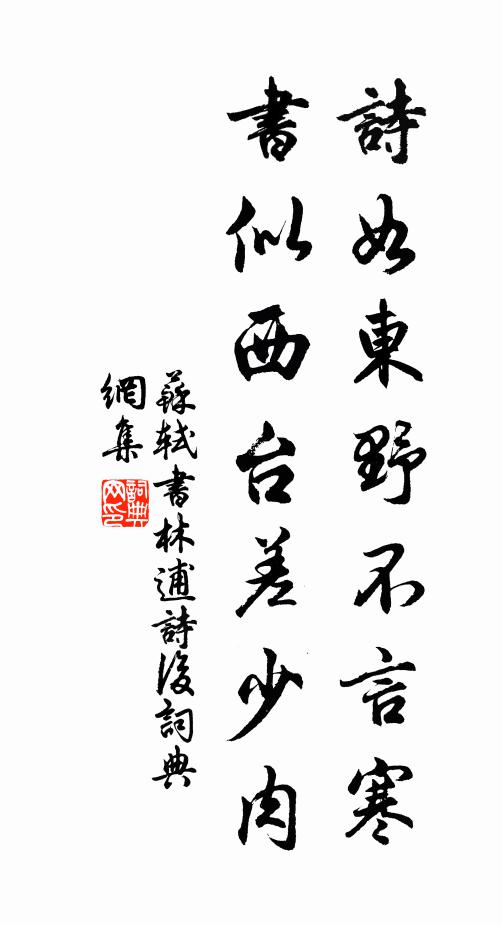 詩如東野不言寒
書似西台差少肉
蘇軾書林逋詩後詞典
網集
詞典網印